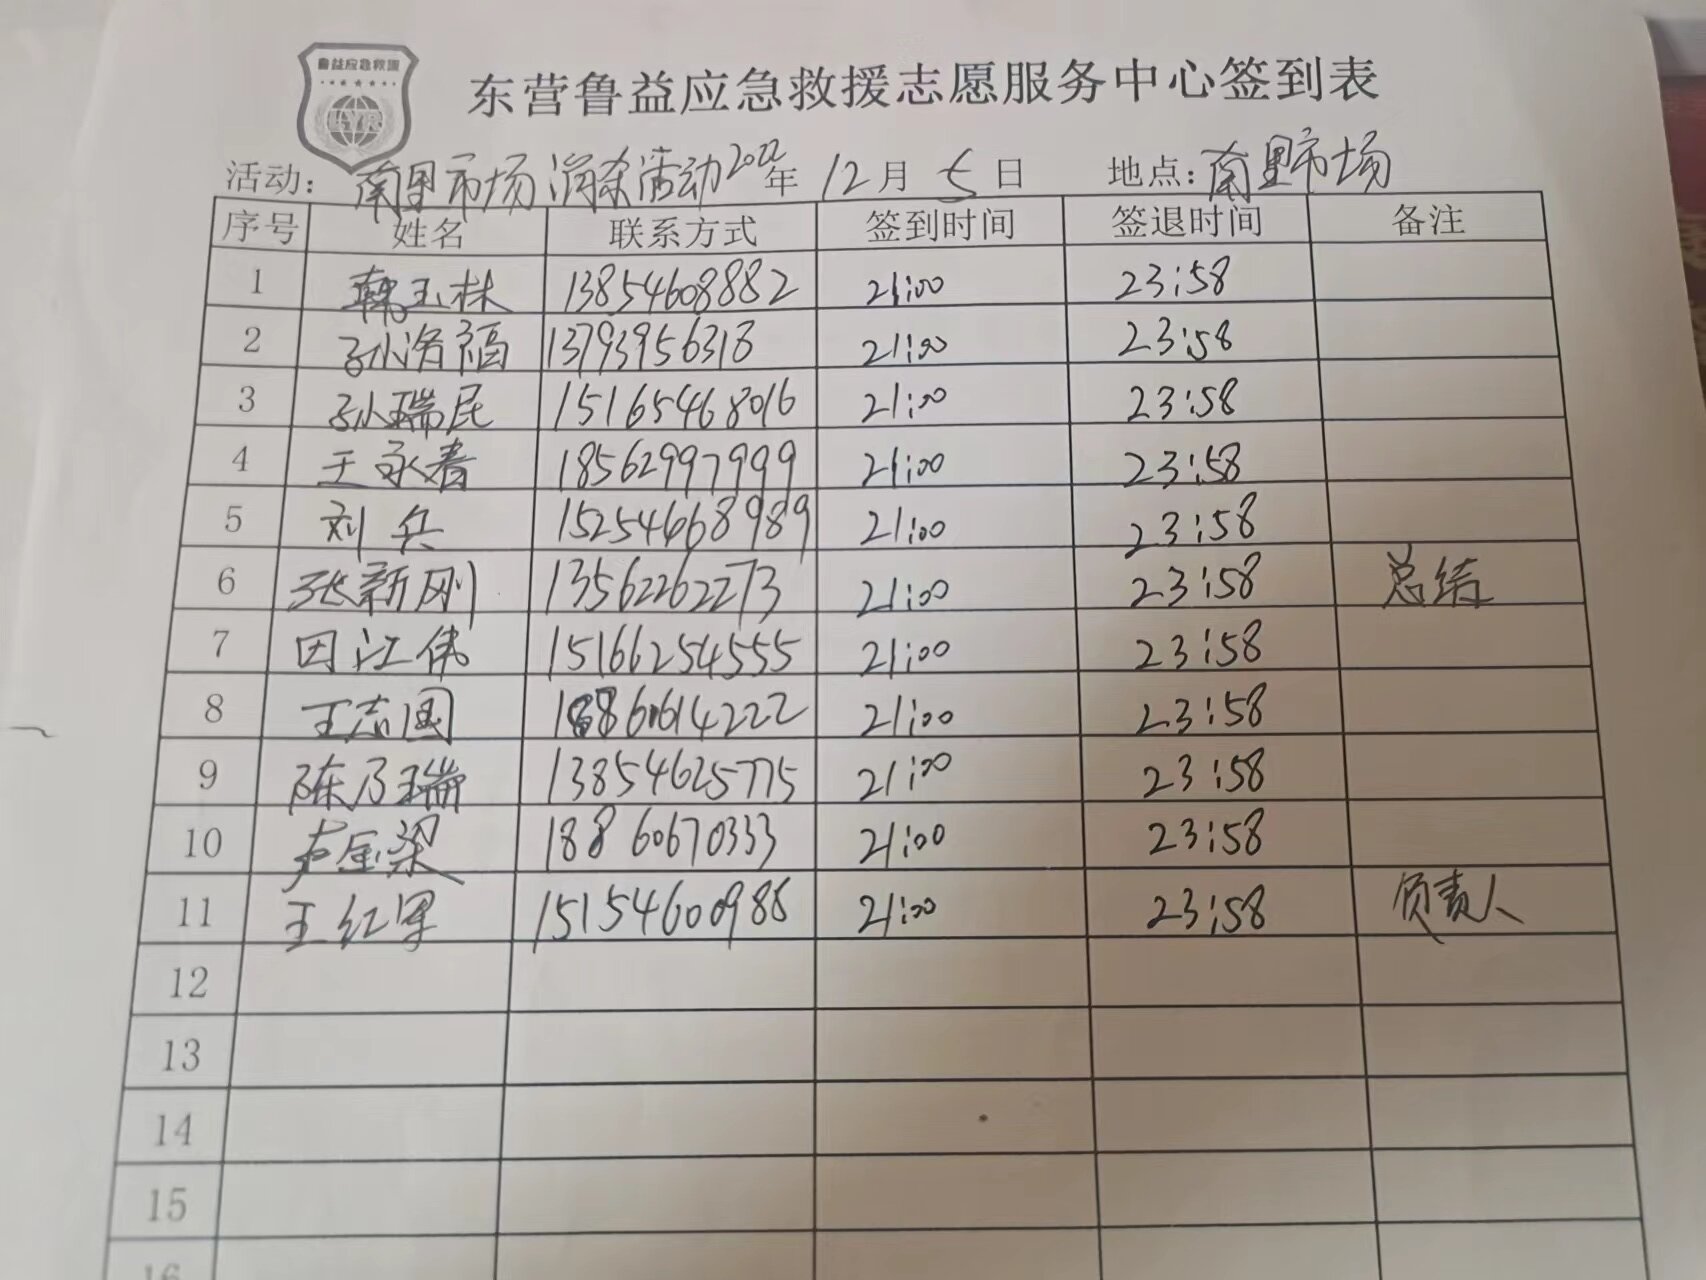 鲁益应急救援
东营鲁益应急救援志愿服务中心签到表
活动: 南里市场消杀活动 2022年 12月 5日 地点: 南里市场
序号 姓名 联系方式 签到时间 签退时间 备注
1 韩玉林 13854608882 21:00 23:58
2 孙洛福 13793956318 21:00 23:58
3 孙瑞民 15165468016 21:00 23:58
4 王永春 18562997999 21:00 23:58
5 刘兵 15254668989 21:00 23:58
6 张新刚 13562262273 21:00 23:58 总结
7 田江伟 15166254555 21:00 23:58
8 王志国 18860614222 21:00 23:58
9 陈乃瑞 13854625775 21:00 23:58
10 18860670333 21:00 23:58
11 王红军 15154600988 21:00 23:58 负责人
12
13
14
15
16